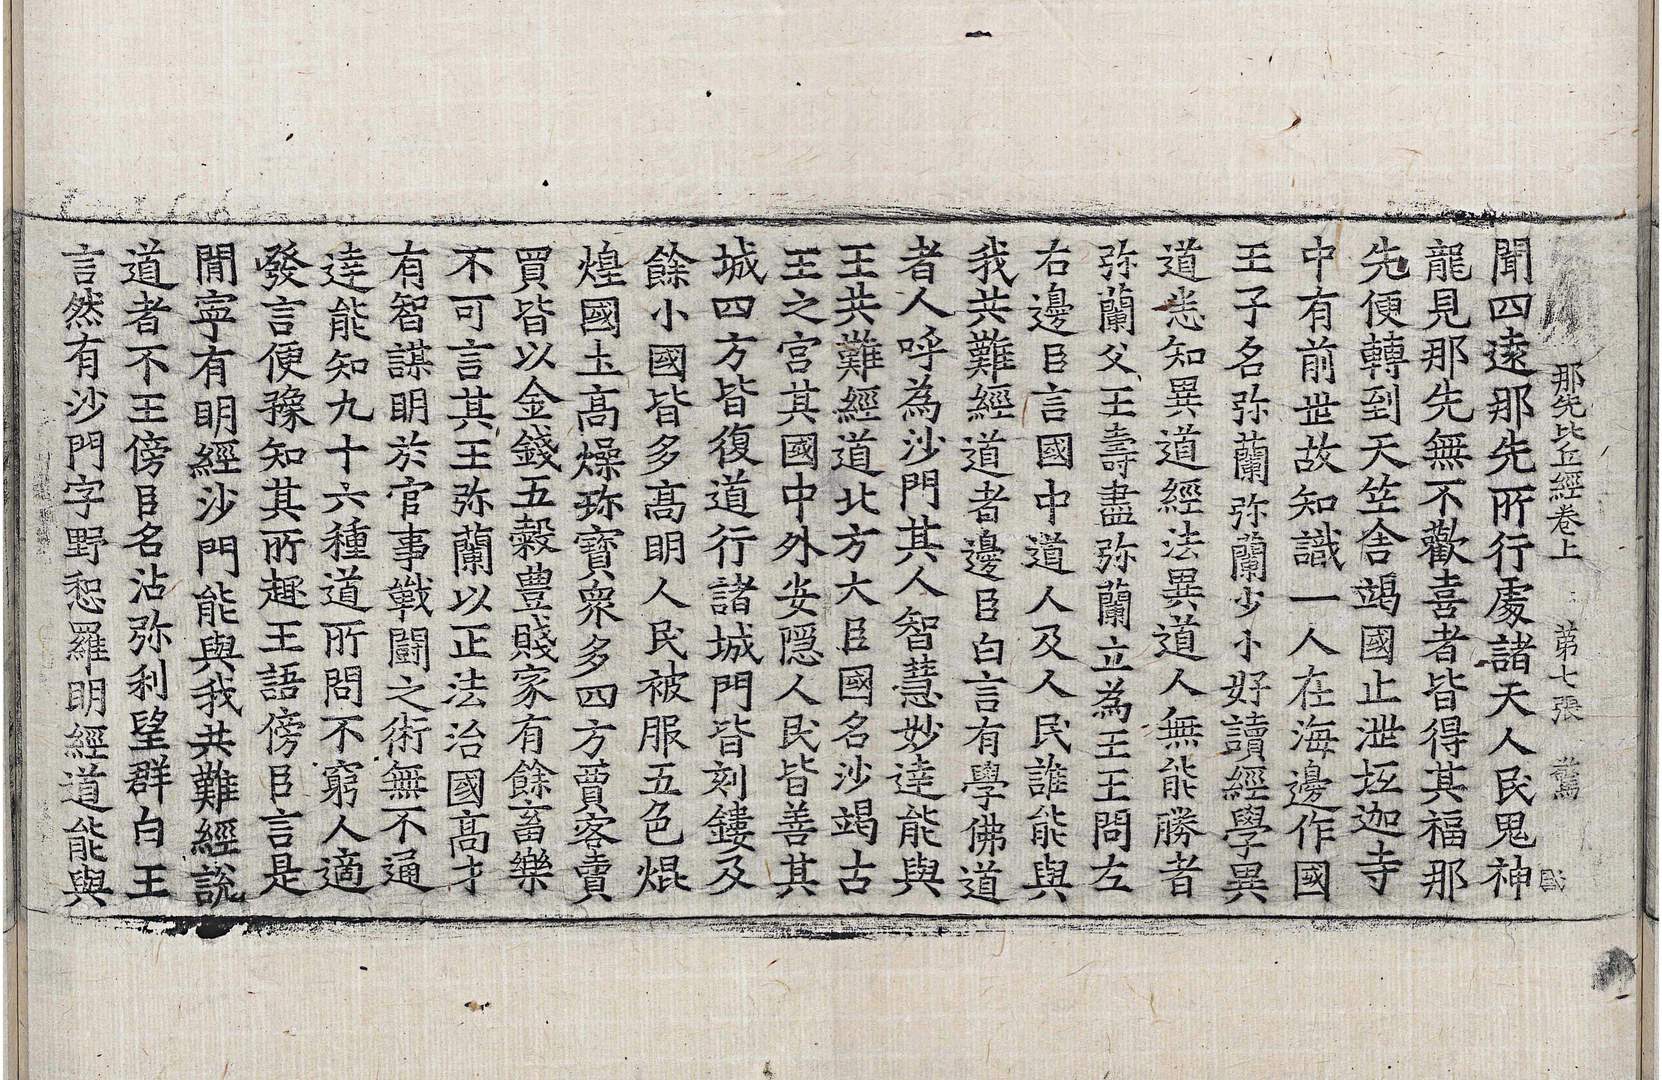 那先比丘經卷上 第七張 驚
聞四遠那先所行處諸天人民鬼神
龍見那先無不歡喜者皆得其福那
先便轉到天竺舍竭國止泄坻迦寺
中有前世故知識一人在海邊作國
王子名弥蘭弥蘭少小好讀經學異
道悉知異道經法異道人無能勝者
弥蘭父王壽盡弥蘭立為王王問左
右邊臣言國中道人及人民誰能與
我共難經道者邊臣白言有學佛道
者人呼為沙門其人智慧妙達能與
王共難經道北方大臣國名沙竭古
王之宮其國中外安隱人民皆善其
城四方皆復道行諸城門皆刻鏤及
餘小國皆多高明人民被服五色焜
煌國土高燥珎寶衆多四方賈客賣
買皆以金錢五糓豊賤家有餘畜樂
不可言其王弥蘭以正法治國高才
有智謀明於官事戰鬪之術無不通
達能知九十六種道所問不窮人適
發言便豫知其所趣王語傍臣言是
間寧有明經沙門能與我共難經說
道者不王傍臣名沾弥利望群白王
言然有沙門字野惒羅明經道能與